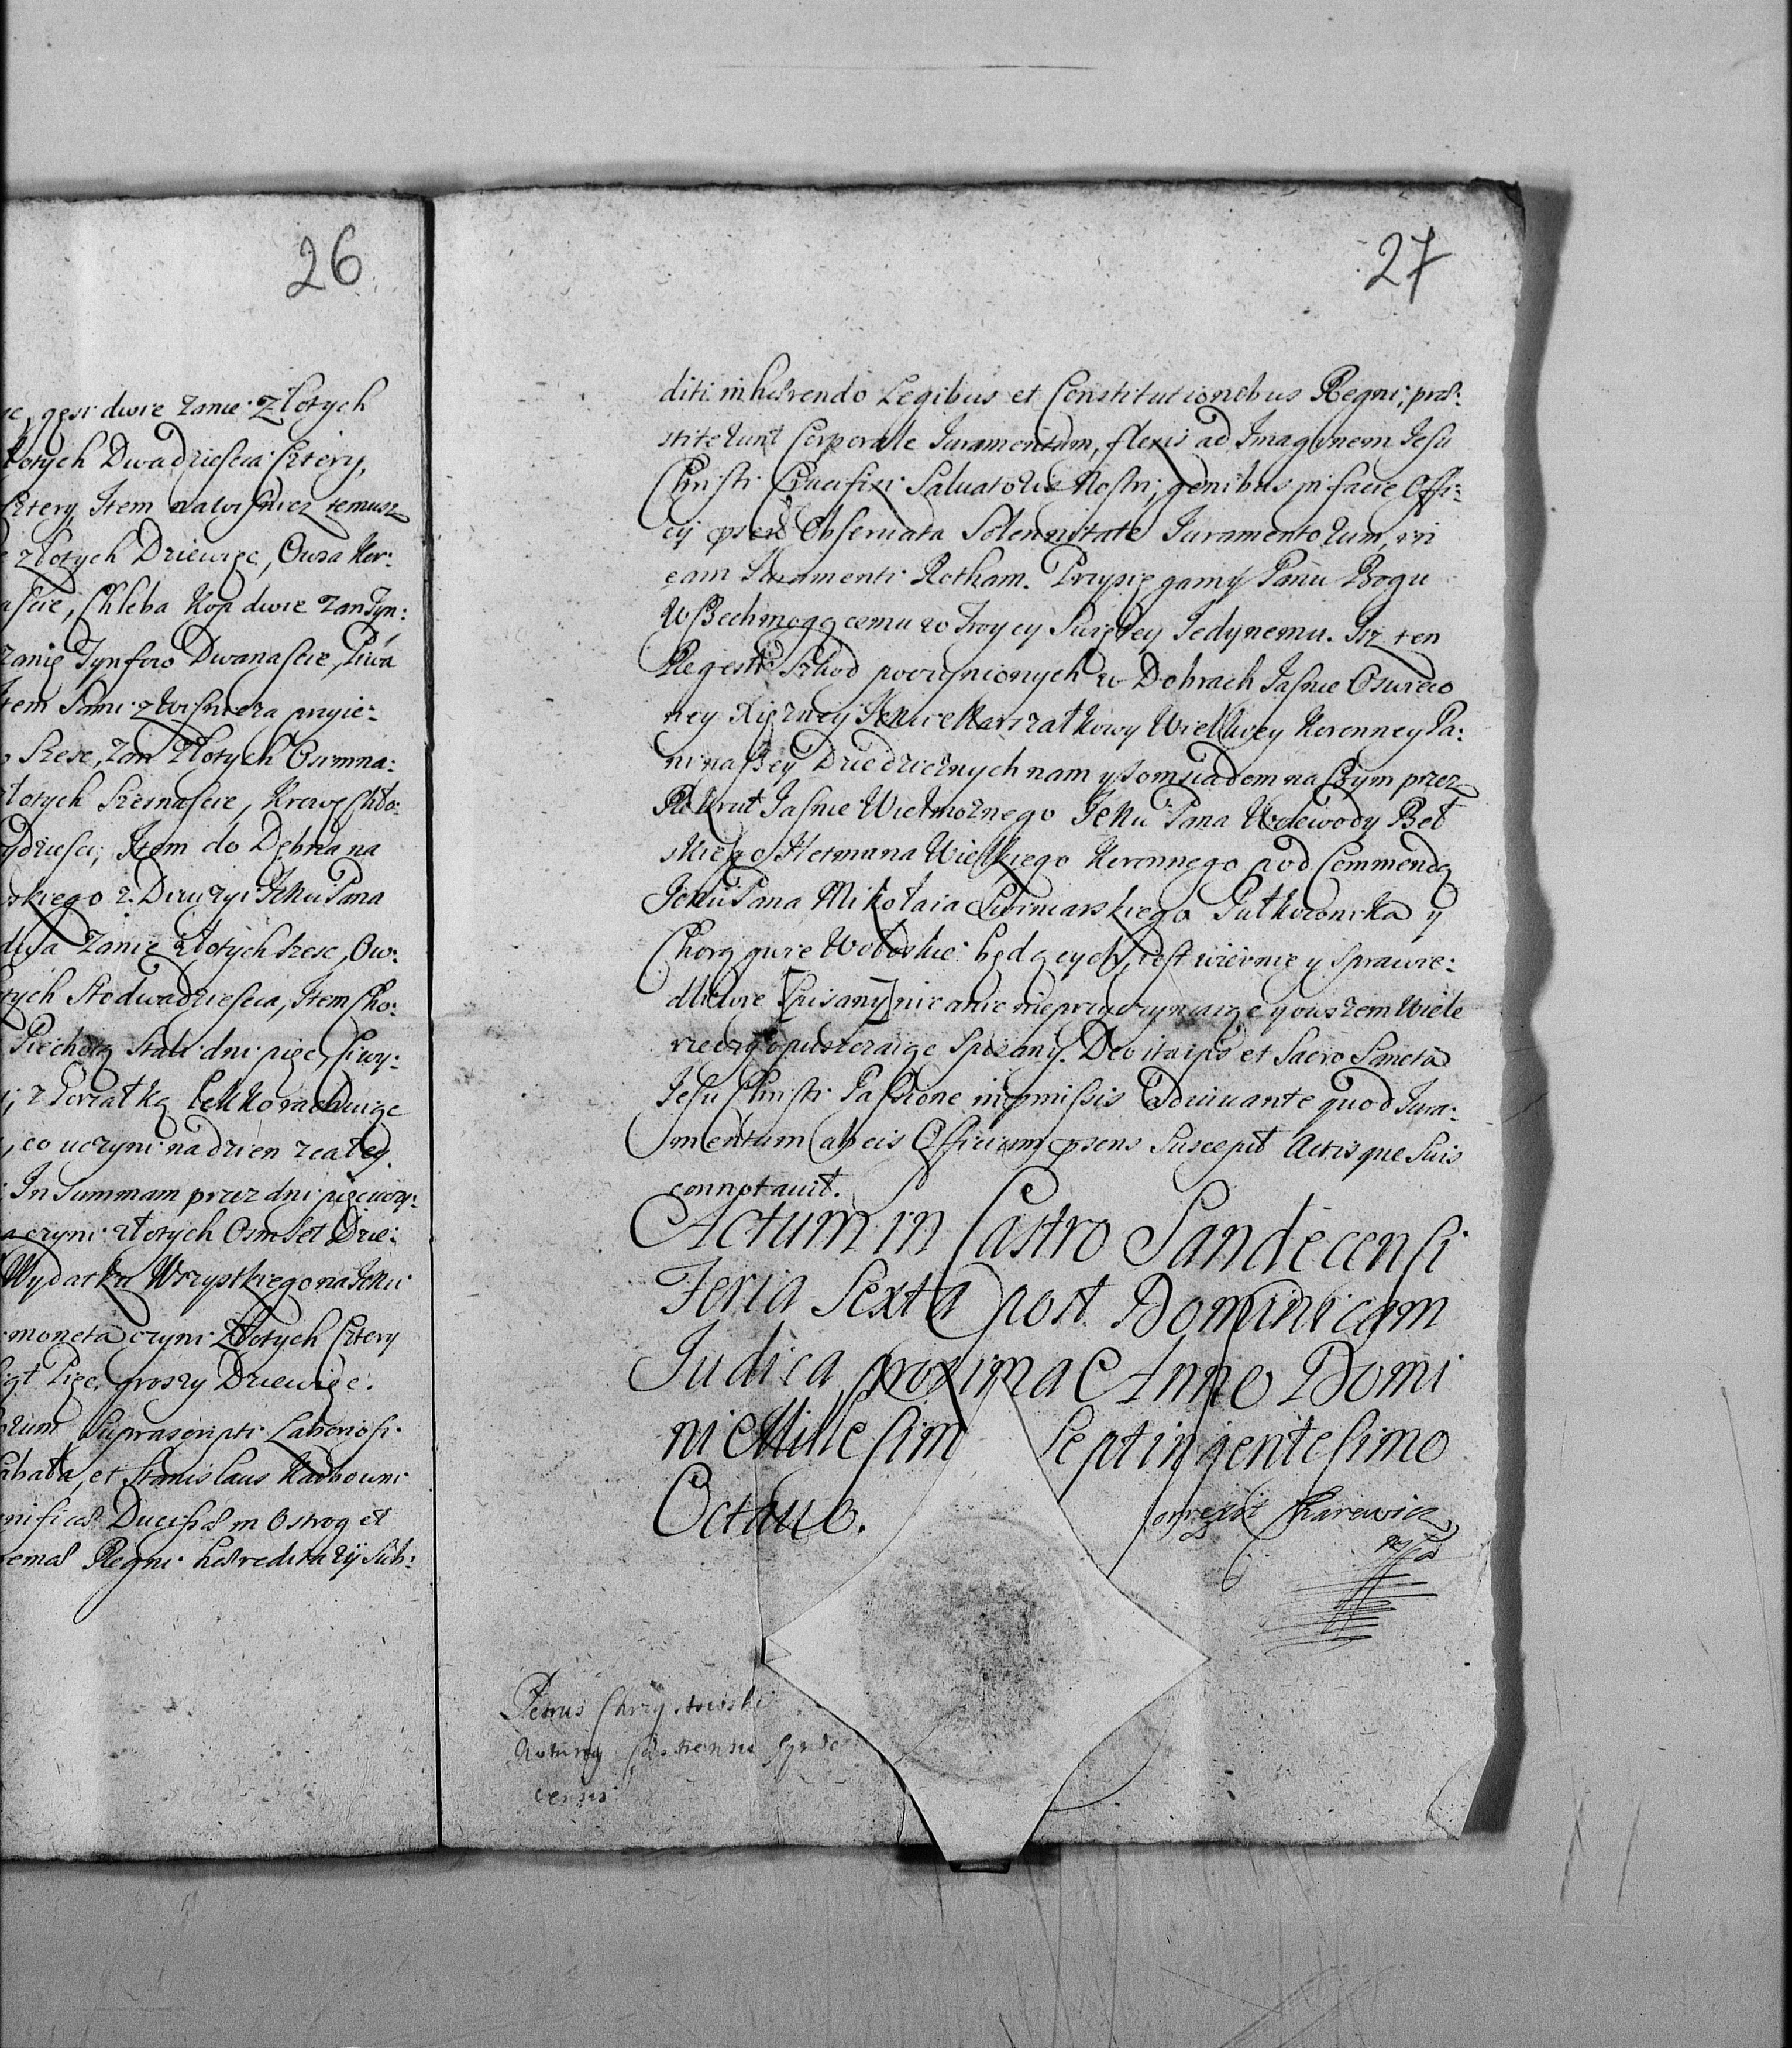 26
ę, gęsi dwie zanie Złotych
łotych Dwadziescia Cztery,
Cztery, Item na wisnicz temusz
złotych Dziewięc, Owsa Kor:
ascie, Chleba Kop dwie zan Tyn:
zanię Tynfow Dwanascie, Piwa
tem Pani z Wisnicza przyie:
Szesc, zan Złotych Osimna:
złotych Szesnascie, Krowę Chło:
ydziesci, Item do Dębna na
skiego z Diwizyi Jchu Pana
dwa zanię złotych szesc, Ow:
tych Stodwadziescia, Item Cho:
Piechotą Stali dni pięc, Ci wy:
, co uczyni na dzien
In Summam przez dni pięc wszy:
aczyni złotych Osmset Dzie:
Wydatku Wszystkiego na Ichu
moneta czyni Złotych Cztery
Pięc, groszy Dziewięc.
Suprascripti Laboriosi
et Stanislaus Karbowni
nificæ Ducissæ in Ostrog et
remæ Regni hæreditarÿ Sub:
27
diti inhærendo Legibus et Constitutionibus Regni, præ:
stiterunt Corporale Iuramentum, flexis ad Imaginem Iesu
Christi Crucifixi Saluatoris Nostri, genibus in facie Offi:
cij psen Obseruata Solennitate Iuramentorum, in
eam Iuramenti Rotham. Przysięgamy Panu Bogu
Wszechmogącemu w Troycy Swiętey Iedynemu. Isz ten
Regestr Szkod poczynionych w Dobrach Iasnie Oswieco
ney Xięzney Jchmce Marszałkowy Wielkiey Koronney Pa:
ni naszey Dziedzicznych nam y Somsiadom naszym przez
Rekrut Iasnie Wielmoznego Jchu Pana Woiewody Beł
skiego Hetmana Wielkiego Koronnego pod Commendą
Jchu Pana Mikołaia Swiniarskiego Pułkownika y
Chorągwie Wołoskie będących, iest wiernie y sprawie:
dliwie [Spisany] nic anic nieprzyczyniaiąc y owszem Wiele
rzeczy opuszczaiąc Spisany. Deo itaqs et Sacro Sancta
Iesu Christi Passione inpmissis Adiuuante quod Iura:
mentum ab eis Officium psens Suscepit Actisque Suis
connotauit.
Actum in Castro Sandecensi
Feria Sexta post Dominicam
Iudica proxima Anno Domi
ni Millesimo Septingentesimo
Octauo.
Correxit
Petrus
Notariq Castrensis Syndec
ensis